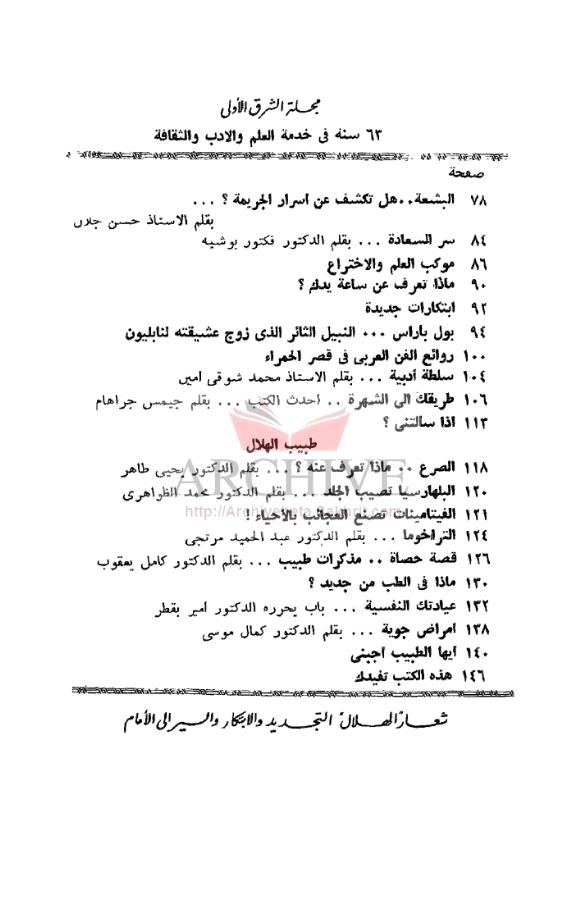 مجلة الشرق الأولى
٦٣ سنة فى خدمة العلم والادب والثقافة
صفحة
٧٨ البشعة..هل تكشف عن اسرار الجريمة ؟ ...
بقلم الاستاذ حسن جلال
٨٤ سر السعادة ... بقلم الدكتور فكتور بوشيه
٨٦ موكب العلم والاختراع
٩٠ ماذا تعرف عن ساعة يدك ؟
٩٢ ابتكارات جديدة
٩٤ بول باراس ... النبيل الثائر الذى زوج عشيقته لنابليون
١٠٠ روائع الفن العربى فى قصر الحمراء
١٠٤ سلطة أدبية ... بقلم الاستاذ محمد شوقى امين
١٠٦ طريقك الى الشهرة .. احدث الكتب ... بقلم جيمس جراهام
١١٣ اذا سألتنى ؟
طبيب الهلال
١١٨ الصرع .. ماذا تعرف عنه ؟ ... بقلم الدكتور يحيى طاهر
ARCHIVE
١٢٠ البلهارسيا تصيب الجلد ... بقلم الدكتور محمد الظواهرى
http://Archivebeta.Sakhrit.com
١٢١ الفيتامينات تصنع العجائب بالأحياء !
١٢٤ التراخوما ... بقلم الدكتور عبد الحميد مرتجى
١٢٦ قصة حصاة .. مذكرات طبيب ... بقلم الدكتور كامل يعقوب
١٣٠ ماذا فى الطب من جديد ؟
١٣٢ عيادتك النفسية ... باب يحرره الدكتور أمير بقطر
١٣٨ امراض جوية ... بقلم الدكتور كمال موسى
١٤٠ أيها الطبيب أجبنى
١٤٦ هذه الكتب تفيدك
شعار الهلال التجديد والابتكار والسير الى الأمام